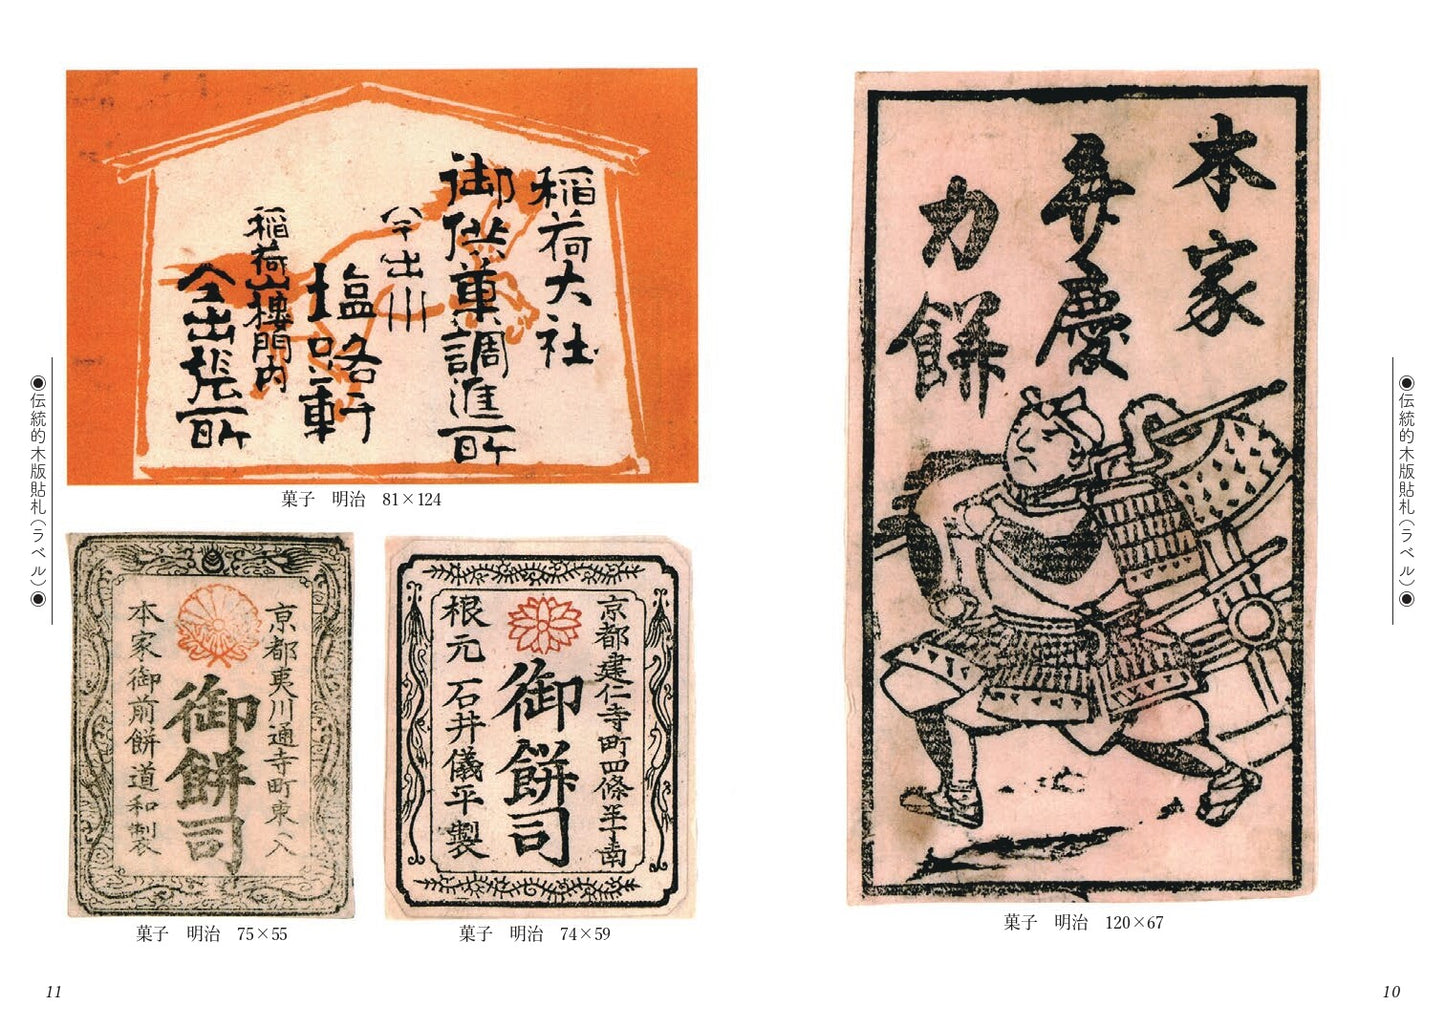 本家
弁慶
力餅
菓子 明治 120×67
◉伝統的木版貼札（ラベル）◉
10
稲荷大社
御供菓調進所
今出川
塩路軒
稲荷山楼門内
仝出張所
菓子 明治 81×124
京都夷川通寺町東へ入
御餅司
本家御前餅道和製
菓子 明治 75×55
京都建仁寺町四條半丁南
御餅司
根元石井儀平製
菓子 明治 74×59
◉伝統的木版貼札（ラベル）◉
11